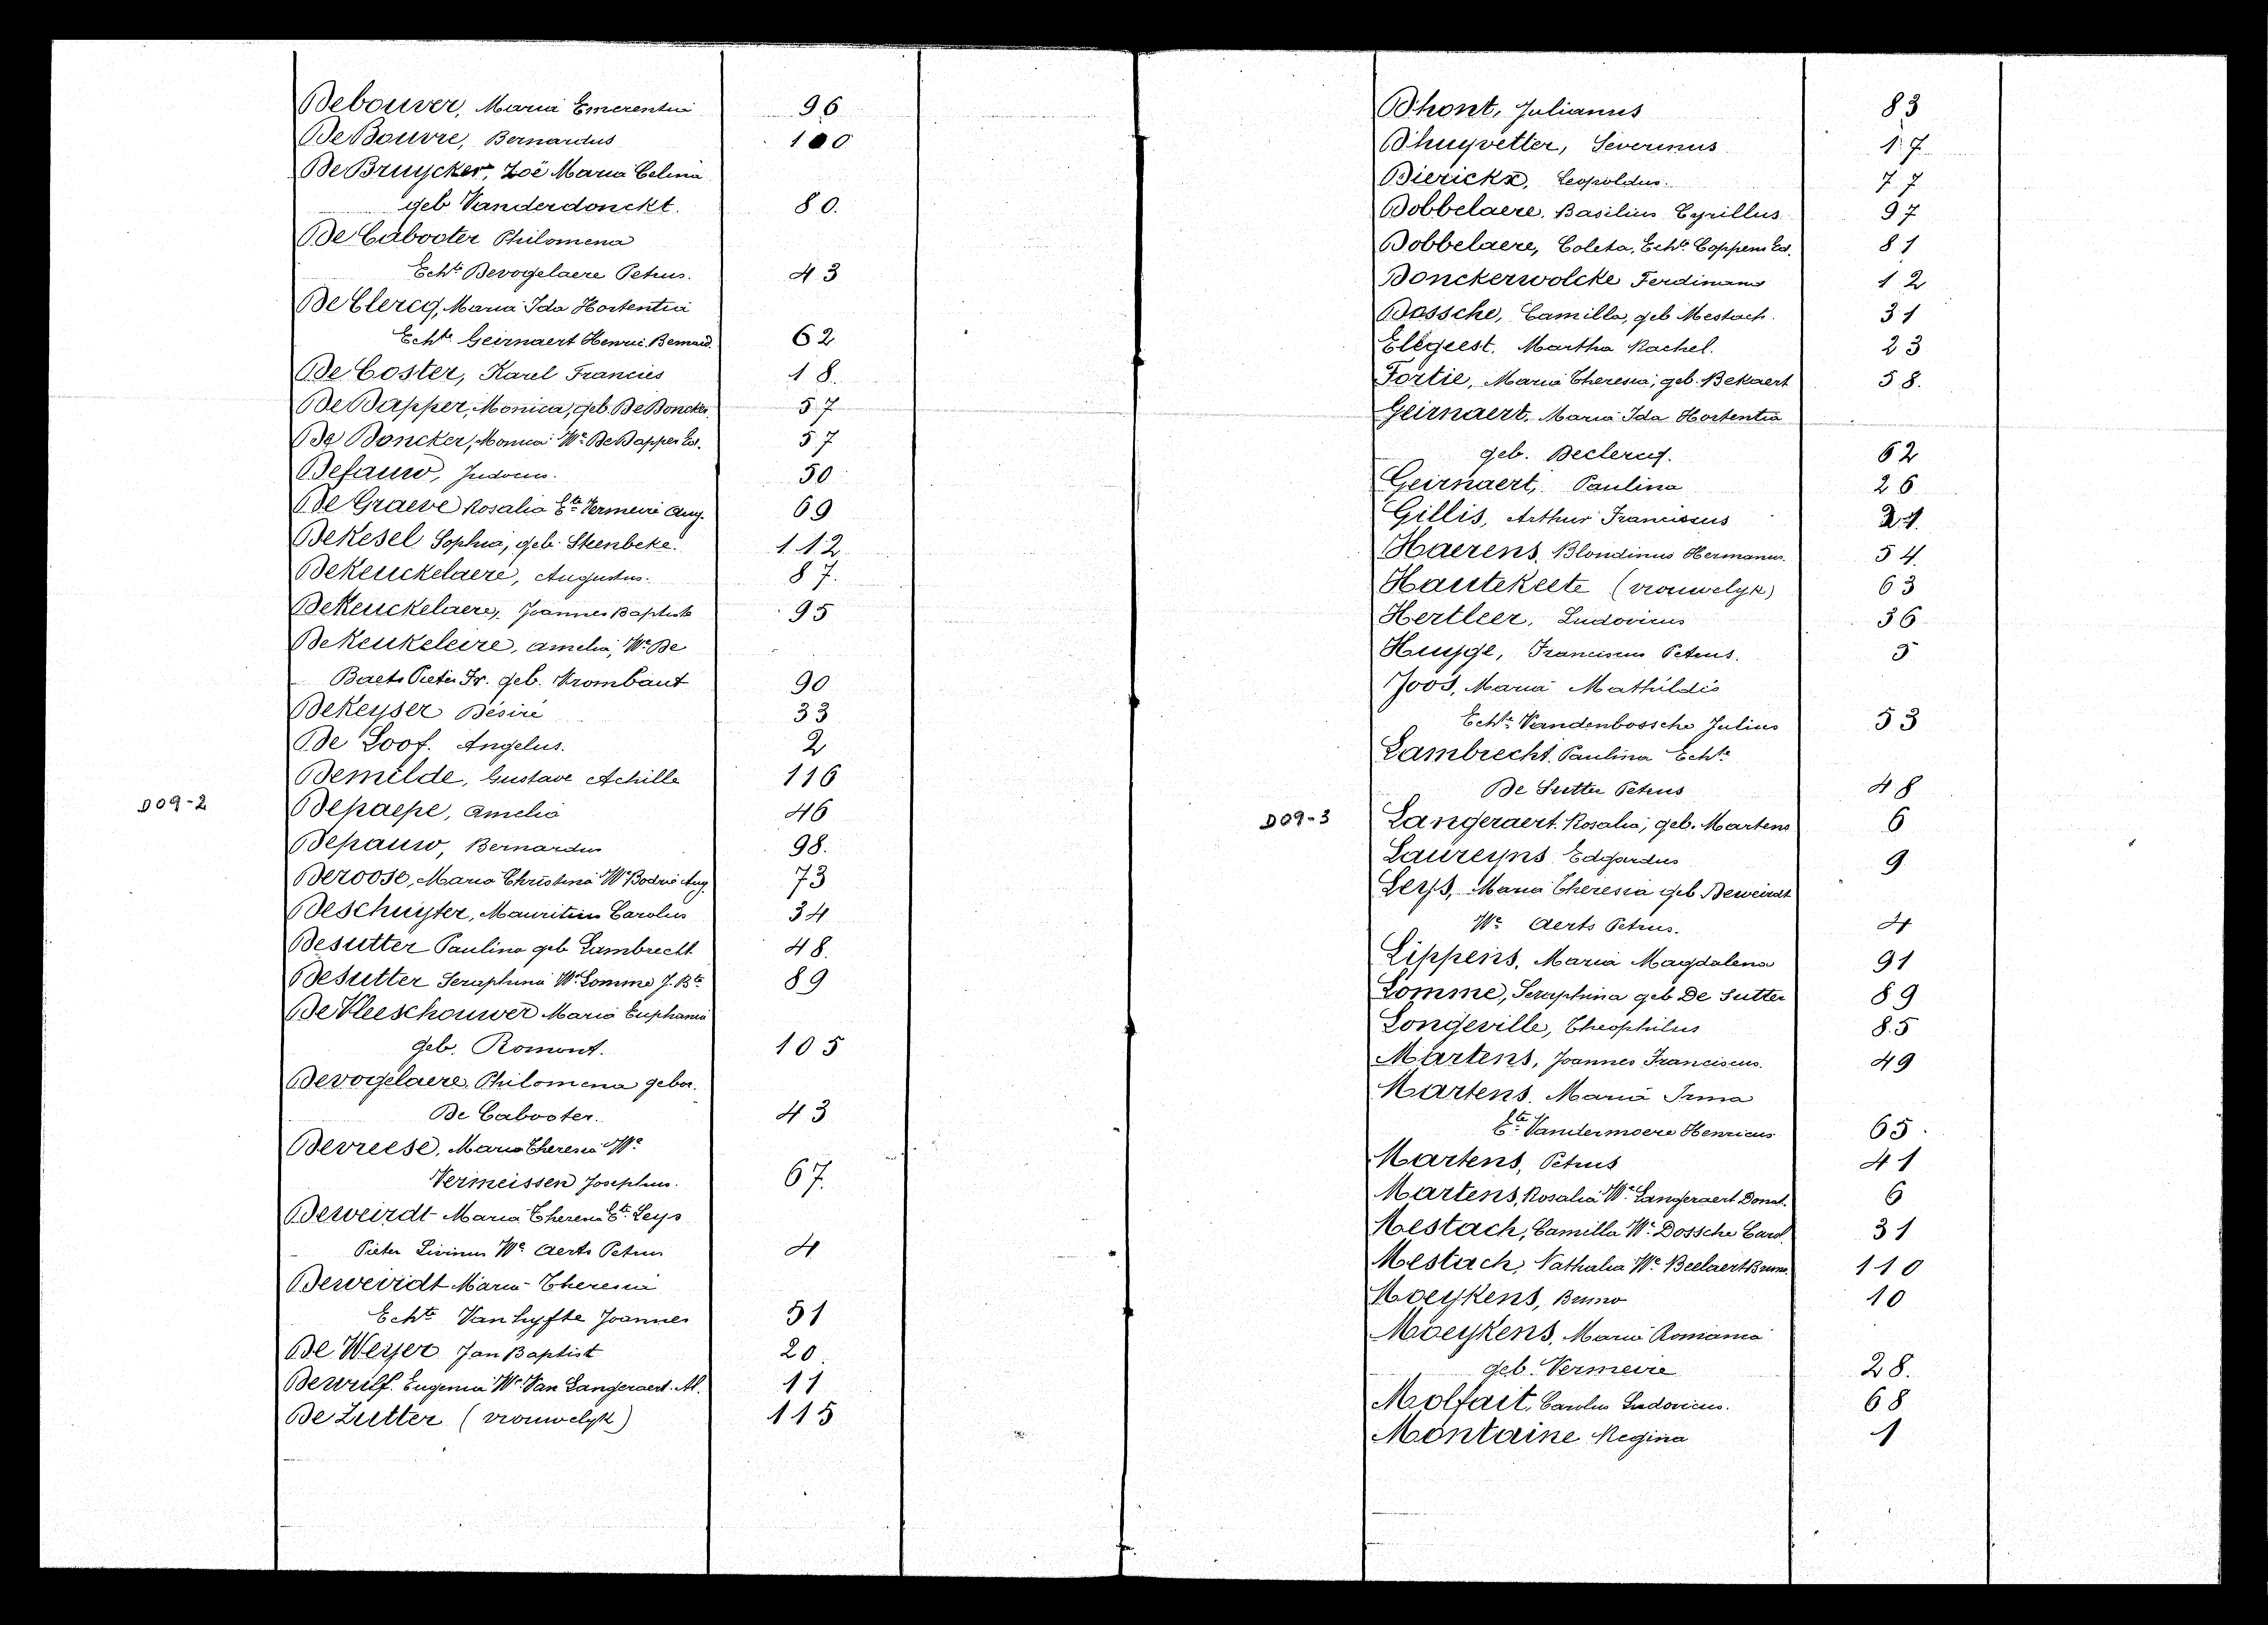 Debouver, Maria Emerentia 96
De Bouvre, Bernardus 100
De Bruycker, Zoë Maria Celina
geb Vanderdonckt. 80.
De Cabooter Philomena
Echte Devogelaere Petrus. 43
De Clercq, Maria Ida Hortentia
Echte Geirnaert Henric. Bernard. 62
De Coster, Karel Francies 18.
De Dapper, Monica, geb. De Doncker. 57
De Doncker, Monica We De Dapper Ed. 57
Defauw, Judocus. 50
De Graeve Rosalia Ete Vermeire Aug. 69
De Kesel Sophia, geb. Steenbeke. 112
De Keuckelaere, Augustus. 87.
De Keuckelaere, Joannes Baptista 95
De Keukeleire, Amelia, We De
Baets Pieter Fr. geb. Krombaut 90
De Keyser Désiré 33
De Loof. Angelus. 2
Demilde, Gustave Achille 116
D09-2
Depaepe, Amelia 46
Depauw, Bernardus 98.
Deroose, Maria Christina We Bodrie Aug. 73
Deschuyter, Mauritius Carolus 34
Desutter Paulina geb Lambrecht 48.
Desutter Seraphina We Lomme J. Bte 89
De Vleeschouwer Maria Euphania
geb. Romont. 105
Devogelaere, Philomena gebor.
De Cabooter. 43
Devreese, Maria Theresia We
Vermeissen Josephus. 67.
Deweirdt Maria Theresia Ete Leys
Pieter Livinus We Aerts Petrus 4
Deweirdt Maria Theresia
Echte Van Hyfte Joannes 51
De Weyer Jan Baptist 20.
Dewulf. Eugenia We Van Langeraert. Al. 11
De Zutter (vrouwelyk) 115
D'hont, Julianus 83
D'huyvetter, Severinus 17
Dierickx, Leopoldus. 77
Dobbelaere. Basilius Cyrillus 97
Dobbelaere, Coleta, Echte Coppens Ed. 81
Donckerwolcke Ferdinand 12
Dossche, Camilla, geb Mestach. 31
Elegeest. Martha Rachel. 23
Fortie, Maria Theresia, geb. Bekaert 58.
Geirnaert, Maria Ida Hortentia
geb. Declercq. 62
Geirnaert, Paulina 26
Gillis, Arthur Franciscus 21
Haerens, Blondinus Hermanus. 54.
Hautekeete (vrouwelyk) 63
Hertleer, Ludovicus 36
Huyge, Franciscus Petrus. 5
Joos, Maria Mathildis
Echte Vandenbossche Julius 53
Lambrecht. Paulina Echte
De Sutter Petrus 48
D09-3
Langeraert. Rosalia, geb. Martens 6
Laureyns Edgardus 9
Leys, Maria Theresia geb Deweirdt
We Aerts Petrus. 4
Lippens, Maria Magdalena 91
Lomme, Seraphina geb De Sutter 89
Longeville, Theophilus 85
Martens, Joannes Franciscus. 49
Martens. Maria Irma
Ete Vandermoere Henricus 65
Martens, Petrus 41
Martens, Rosalia We Langeraert Donat. 6
Mestach, Camilla We Dossche Carol. 31
Mestach, Nathalia We Beelaert Bruno. 110
Moeykens, Bruno 10
Moeykens, Maria Romania
geb. Vermeire 28.
Molfait, Carolus Ludovicus. 68
Montaine Regina 1